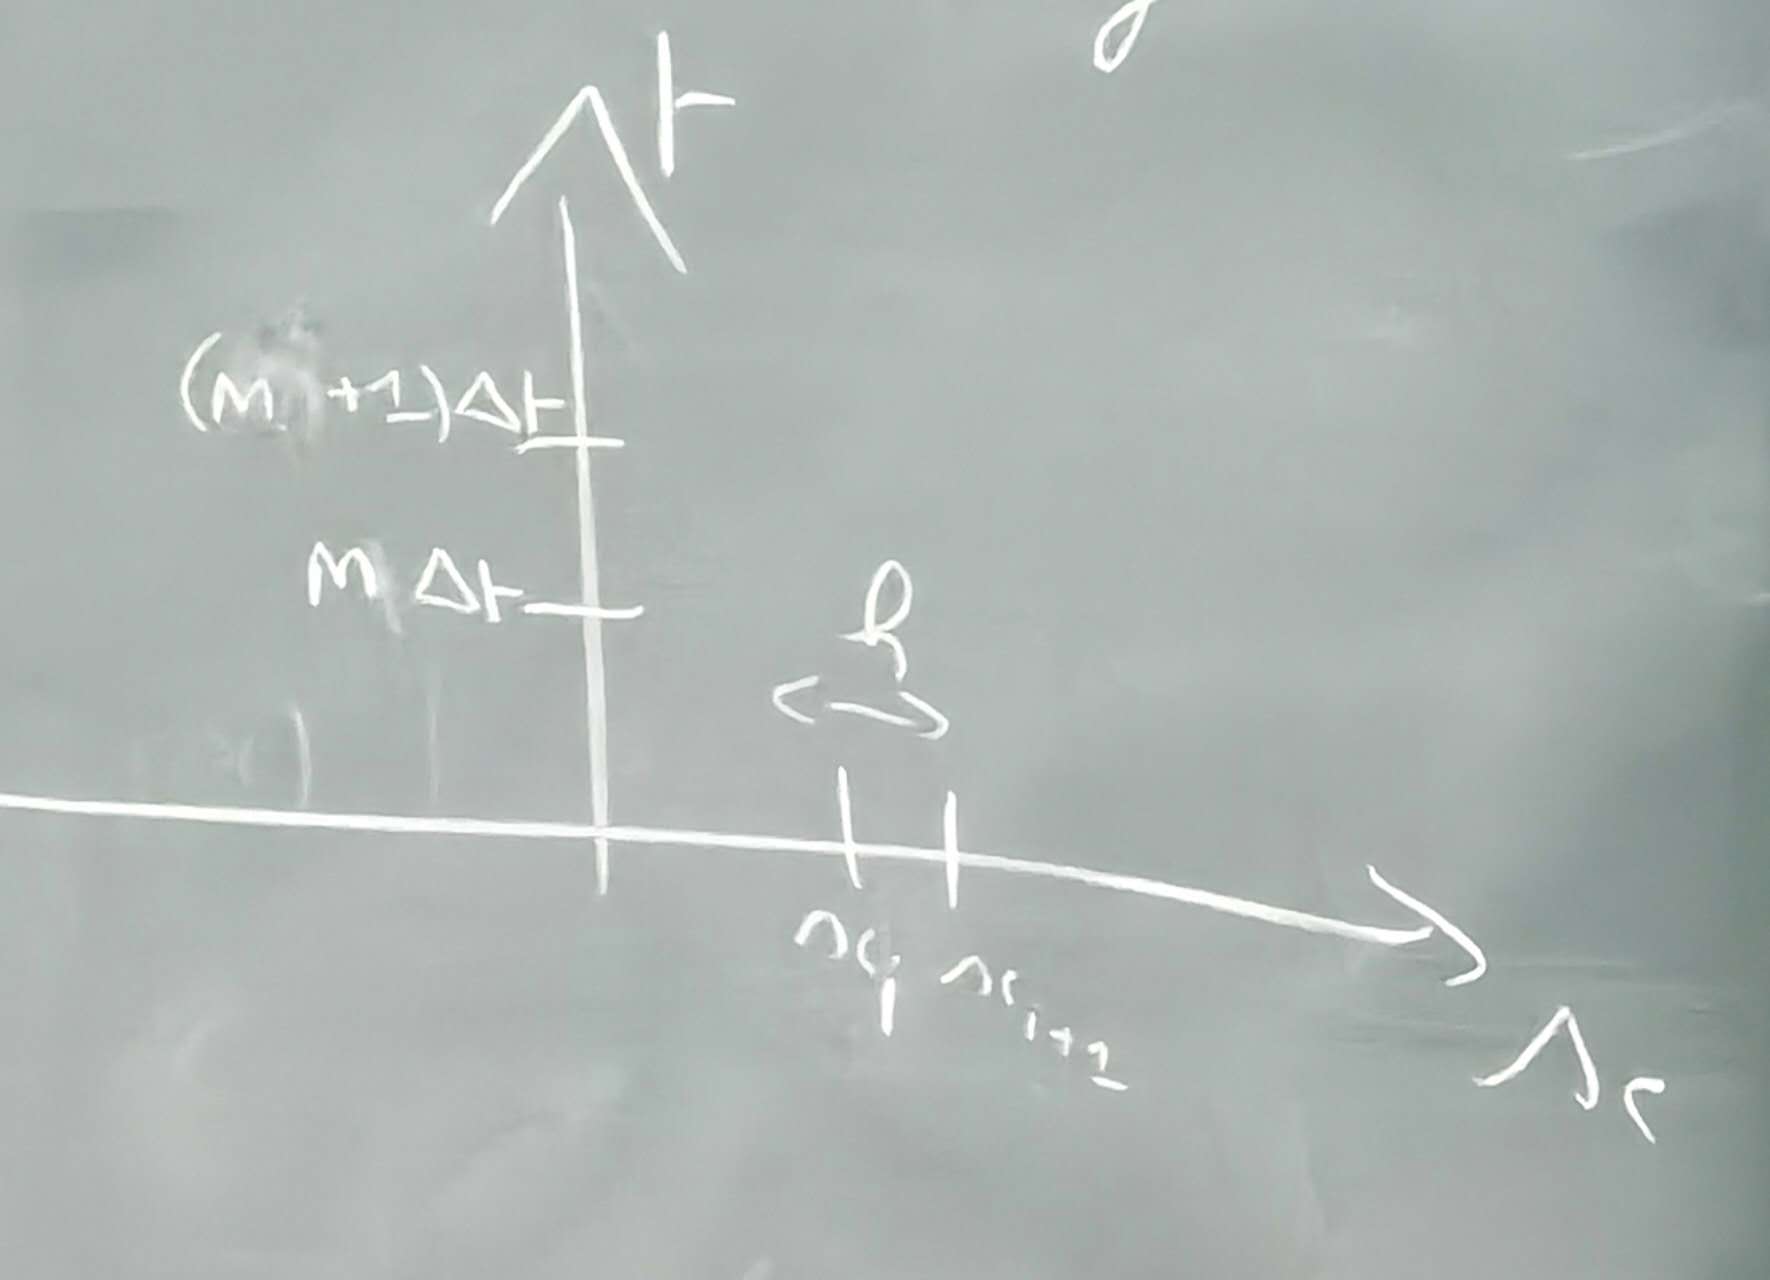 t
(n+1)Δt
nΔt
h
x_i x_{i+1}
x